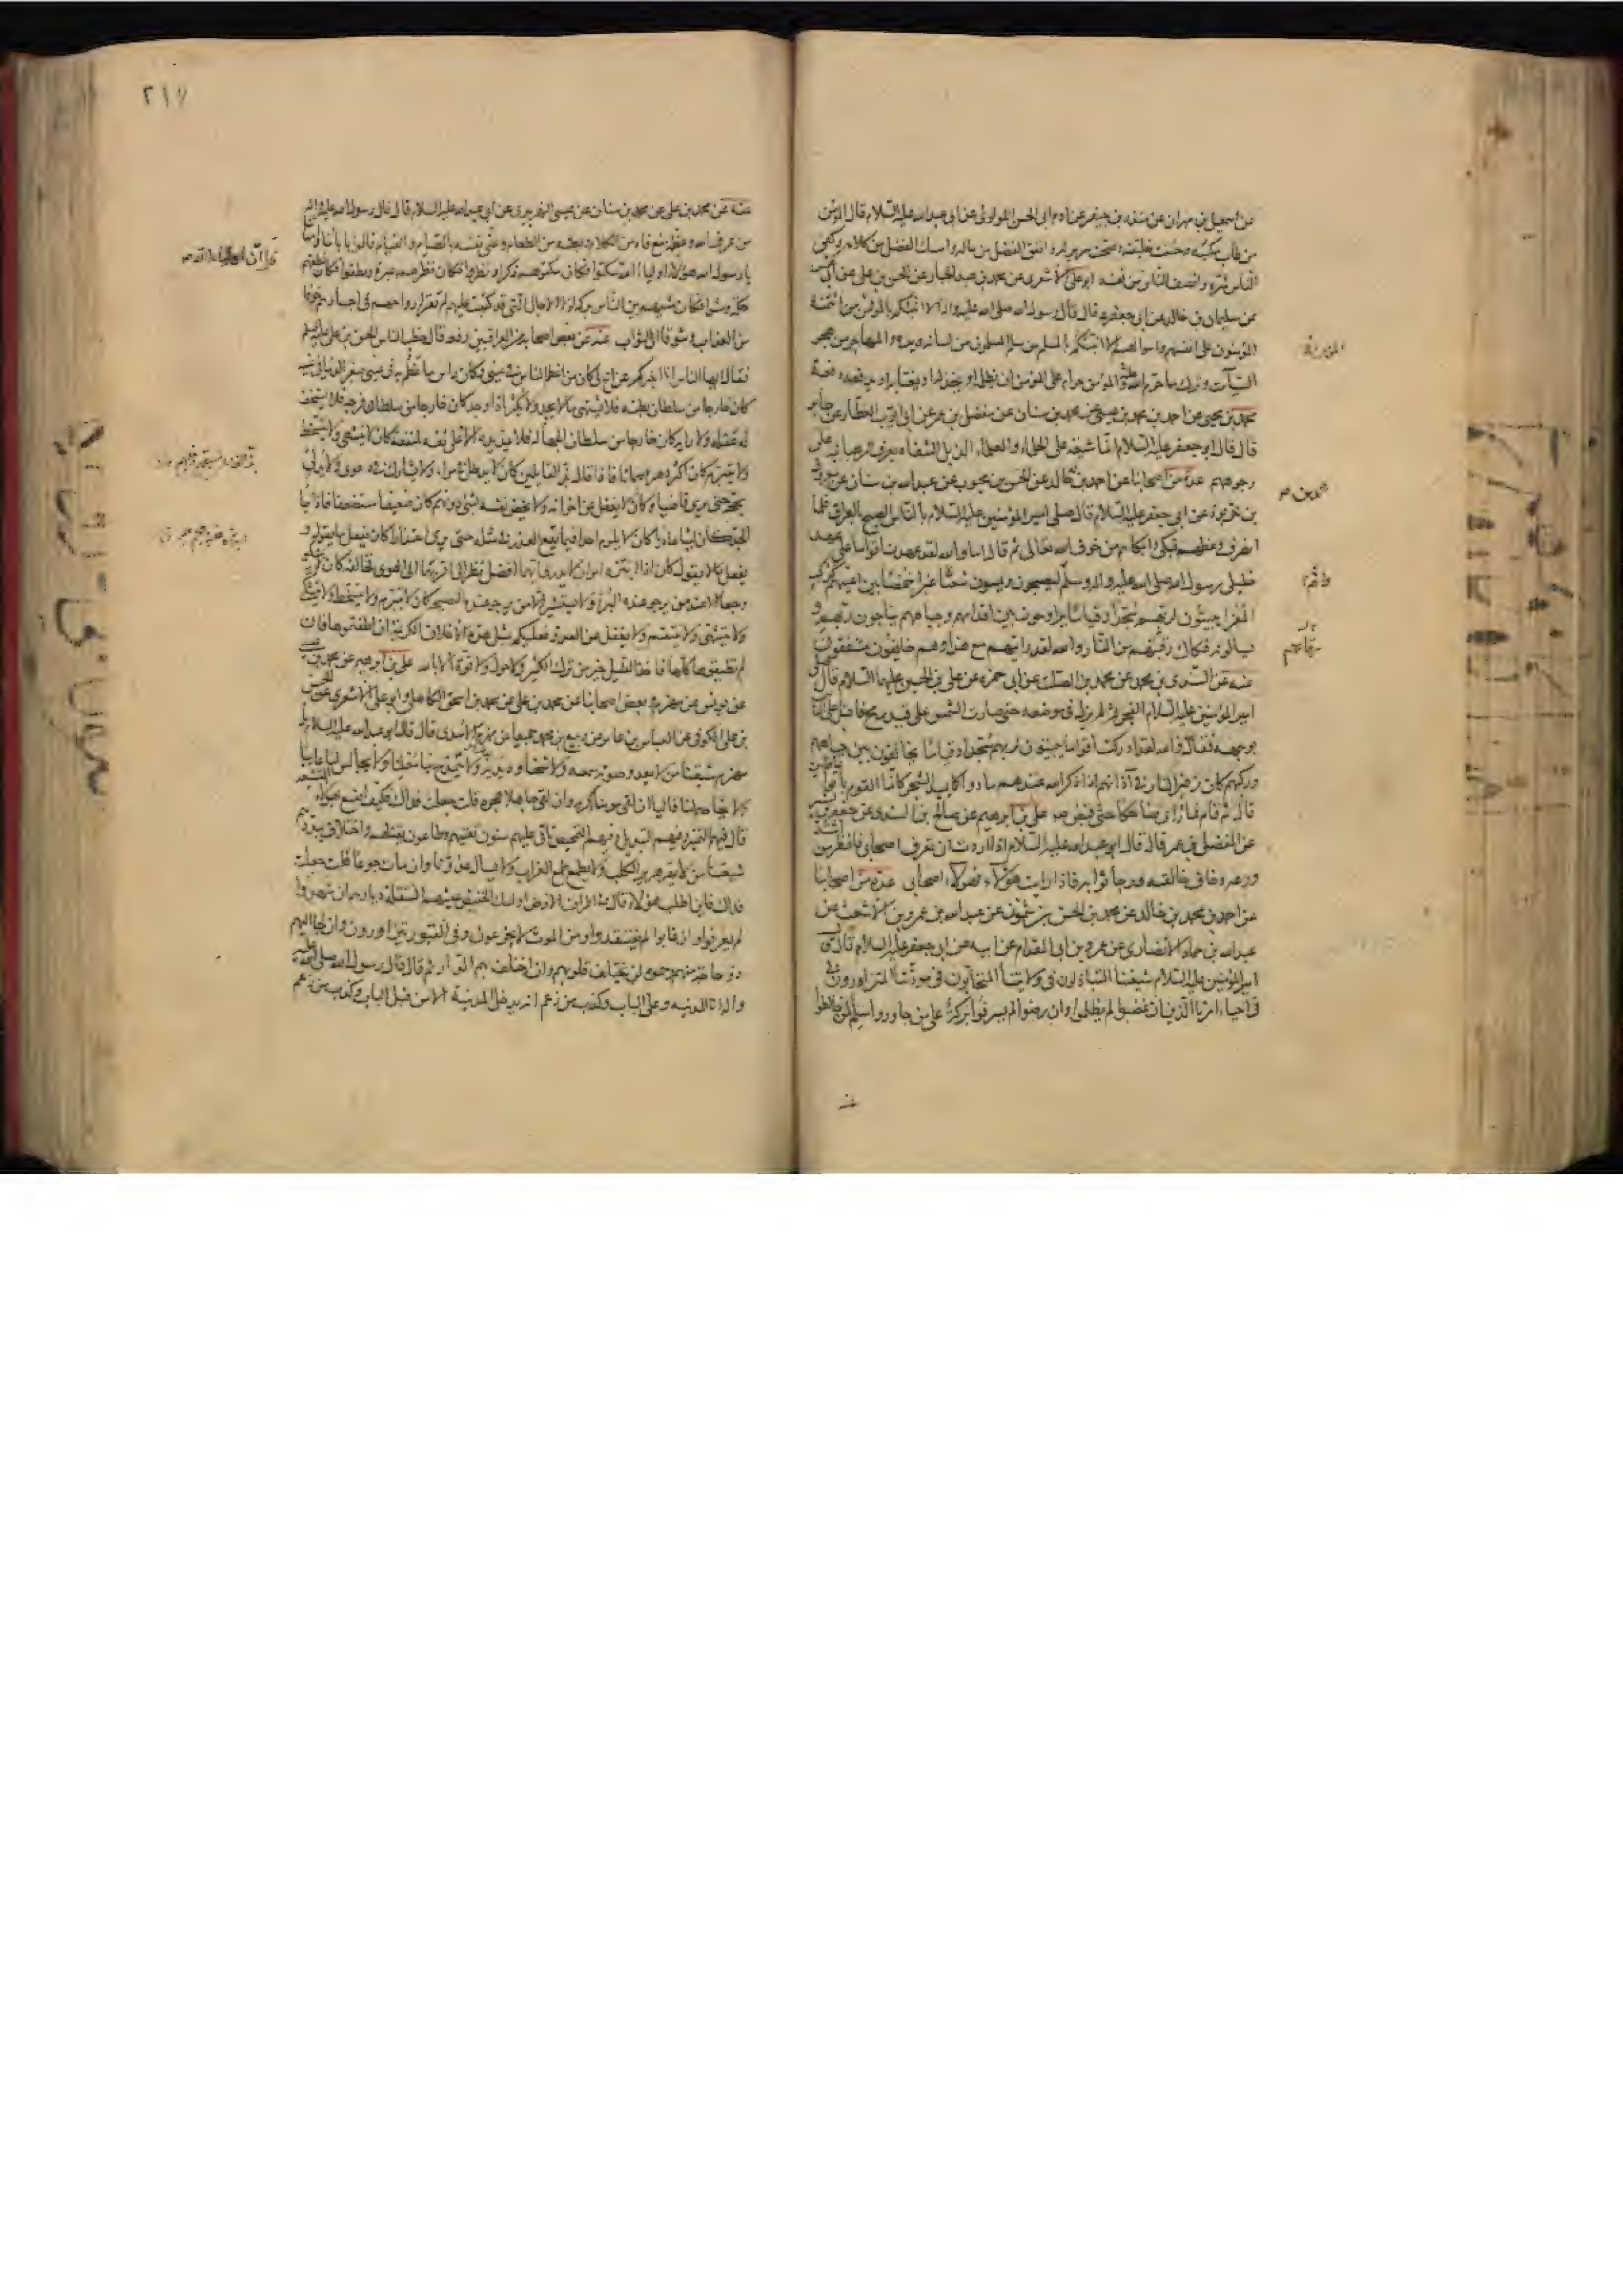 عن اسمعيل بن مهران عن منذر بن جيفر عن ادم ابى الحسين اللؤلؤى عن ابى عبد الله عليه السلام قال المؤمن
من طاب مكسبه وحسنت خليقته وصحت سريرته وانفق الفضل من ماله وامسك الفضل من كلامه وكفى
الناس شره وانصف الناس من نفسه ابو على الاشعرى عن محمد بن عبد الجبار عن الحسن بن على عن ابى
عن سليمان بن خالد عن ابى جعفر قال قال رسول الله صلى الله عليه واله الا انبئكم بالمؤمن من ائتمنه
المؤمنون على انفسهم واموالهم الا انبئكم بالمسلم من سلم المسلمون من لسانه ويده والمهاجر من هجر
السيئات وترك ما حرم الله والمؤمن حرام على المؤمن ان يظلمه او يخذله او يغتابه او يدفعه دفعة
محمد بن يحيى عن احمد بن محمد بن عيسى عن محمد بن سنان عن مفضل بن عمر عن ابى ايوب العطار عن جابر
قال قال ابو جعفر عليه السلام انما شيعة على الحلماء والعلماء الذبل الشفاه يعرف الرهبانية على
وجوههم عدة من اصحابنا عن احمد بن خالد عن الحسن بن محبوب عن عبد الله بن سنان عن معروف
بن خربوذ عن ابى جعفر عليه السلام قال صلى امير المؤمنين عليه السلام بالناس الصبح بالعراق فلما
انصرف وعظهم فبكى وابكاهم من خوف الله تعالى ثم قال اما والله لقد عهدت اقواما على عهد
خليلى رسول الله صلى الله عليه واله وسلم ليصبحون ويمسون شعثا غبرا خمصا بين اعينهم كركب
المعزا يبيتون لربهم سجدا وقياما يراوحون بين اقدامهم وجباههم يناجون ربهم و
يسالونه فكاك رقبتهم من النار والله لقد رايتهم مع هذا وهم خايفون مشفقون
عنه عن السندى بن محمد عن محمد بن الصلت عن ابى حمزة عن على بن الحسين عليهما السلام قال صلى
امير المؤمنين عليه السلام الفجر ثم لم يزل فى موضعه حتى صارت الشمس على قيد رمح فاقبل على الناس
بوجهه فقال والله لقد ادركت اقواما يبيتون لربهم سجدا وقياما يخالفون بين جباههم
وركبهم كان زفير النار فى آذانهم اذا ذكر الله عندهم مادوا كما يميد الشجر كانما القوم باتوا
قال ثم قام فما رئى ضاحكا حتى قبض على بن ابرهيم عن صالح بن السندى عن جعفر بن
عن المفضل بن عمر قال قال ابو عبد الله عليه السلام اذا اردت ان تعرف اصحابى فانظر من
ورعه وخاف خالقه ورجا ثوابه فاذا رايت هؤلاء فهؤلاء اصحابى عدة من اصحابنا
عن احمد بن محمد بن خالد عن محمد بن الحسن بن شمون عن عبد الله بن عمرو بن الاشعث عن
عبد الله بن حماد الانصارى عن عمرو بن ابى المقدام عن ابيه عن ابى جعفر عليه السلام قال قال
امير المؤمنين عليه السلام شيعتنا المتباذلون فى ولايتنا المتحابون فى مودتنا المتزاورون فى
احياء امرنا الذين ان غضبوا لم يظلموا وان رضوا لم يسرفوا بركة على من جاوروا سلم لمن خالطوا
٢١٧
عنه عن محمد بن على عن محمد بن سنان عن عيسى النهريرى عن ابى عبد الله عليه السلام قال قال رسول الله صلى الله عليه واله
من عرف الله وعظمه منع فاه من الكلام وبطنه من الطعام وعفى نفسه بالصيام والقيام قالوا بابائنا وامهاتنا
يا رسول الله هؤلاء اولياء الله سكتوا فكان سكوتهم ذكرا ونظروا فكان نظرهم عبرة ونطقوا فكان نطقهم
حكمة ومشوا فكان مشيهم بين الناس بركة لولا الاجال التى قد كتبت عليهم لم تقر ارواحهم فى اجسادهم خوفا
من العذاب وشوقا الى الثواب عنه عن بعض اصحابه من العراقيين رفعه قال خطب الناس الحسن بن على عليهما السلام
فقال ايها الناس انا اخبركم عن اخ لى كان من اعظم الناس فى عينى وكان راس ما عظم به فى عينى صغر الدنيا فى عينه
كان خارجا من سلطان بطنه فلا يشتهى ما لا يجد ولا يكثر اذا وجد كان خارجا من سلطان فرجه فلا يستخف
له عقله ولا رايه كان خارجا من سلطان الجهالة فلا يمد يده الا على ثقة لمنفعة كان لا يتشهى ولا يتسخط
ولا يتبرم كان اكثر دهره صماتا فاذا قال بذ القائلين كان لا يدخل فى مراء ولا يشارك فى دعوى ولا يدلى
بحجة حتى يرى قاضيا وكان لا يغفل عن اخوانه ولا يخص نفسه بشئ دونهم كان ضعيفا مستضعفا فاذا جاء
الجد كان ليثا عاديا كان لا يلوم احدا فيما يقع العذر فى مثله حتى يرى اعتذارا كان يفعل ما يقول و
يفعل ما لا يقول كان اذا ابتزه امران لا يدرى ايهما افضل نظر الى اقربهما الى الهوى فخالفه كان لا يشكو
وجعا الا عند من يرجو عنده البرء ولا يستشير الا من يرجو عنده النصيحة كان لا يتبرم ولا يتسخط ولا يتشكى
ولا يتشهى ولا ينتقم ولا يغفل عن العدو فعليكم بمثل هذه الاخلاق الكريمة ان اطقتموها فان
لم تطيقوها كلها فاخذ القليل خير من ترك الكثير ولا حول ولا قوة الا بالله على بن ابرهيم عن محمد بن عيسى
عن يونس عن مهزم وبعض اصحابنا عن محمد بن على عن محمد بن اسحق الكاهلى وابو على الاشعرى عن الحسن
بن على الكوفى عن العباس بن عامر عن ربيع بن محمد جميعا عن مهزم الاسدى قال قال ابو عبد الله عليه السلام يا
مهزم شيعتنا من لا يعدو صوته سمعه ولا شحناؤه بدنه ولا يمتدح بنا معلنا ولا يجالس لنا عايبا
ولا يخاصم لنا قاليا ان لقى مؤمنا اكرمه وان لقى جاهلا هجره قلت جعلت فداك فكيف اصنع بهؤلاء
قال فيهم التمييز وفيهم التبديل وفيهم التمحيص تاتى عليهم سنون تفنيهم وطاعون يقتلهم واختلاف يبددهم
شيعتنا من لا يهر هرير الكلب ولا يطمع طمع الغراب ولا يسال عدونا وان مات جوعا قلت جعلت
فداك فاين اطلب هؤلاء قال فى اطراف الارض اولئك الخفيض عيشهم المنتقلة ديارهم ان شهدوا
لم يعرفوا وان غابوا لم يفتقدوا ومن الموت لا يجزعون وفى القبور يتزاورون وان لجا اليهم
ذو حاجة منهم رحموه لن تختلف قلوبهم وان اختلف بهم الدار ثم قال قال رسول الله صلى الله عليه
واله انا المدينة وعلى الباب وكذب من زعم انه يدخل المدينة الا من قبل الباب وكذب من زعم